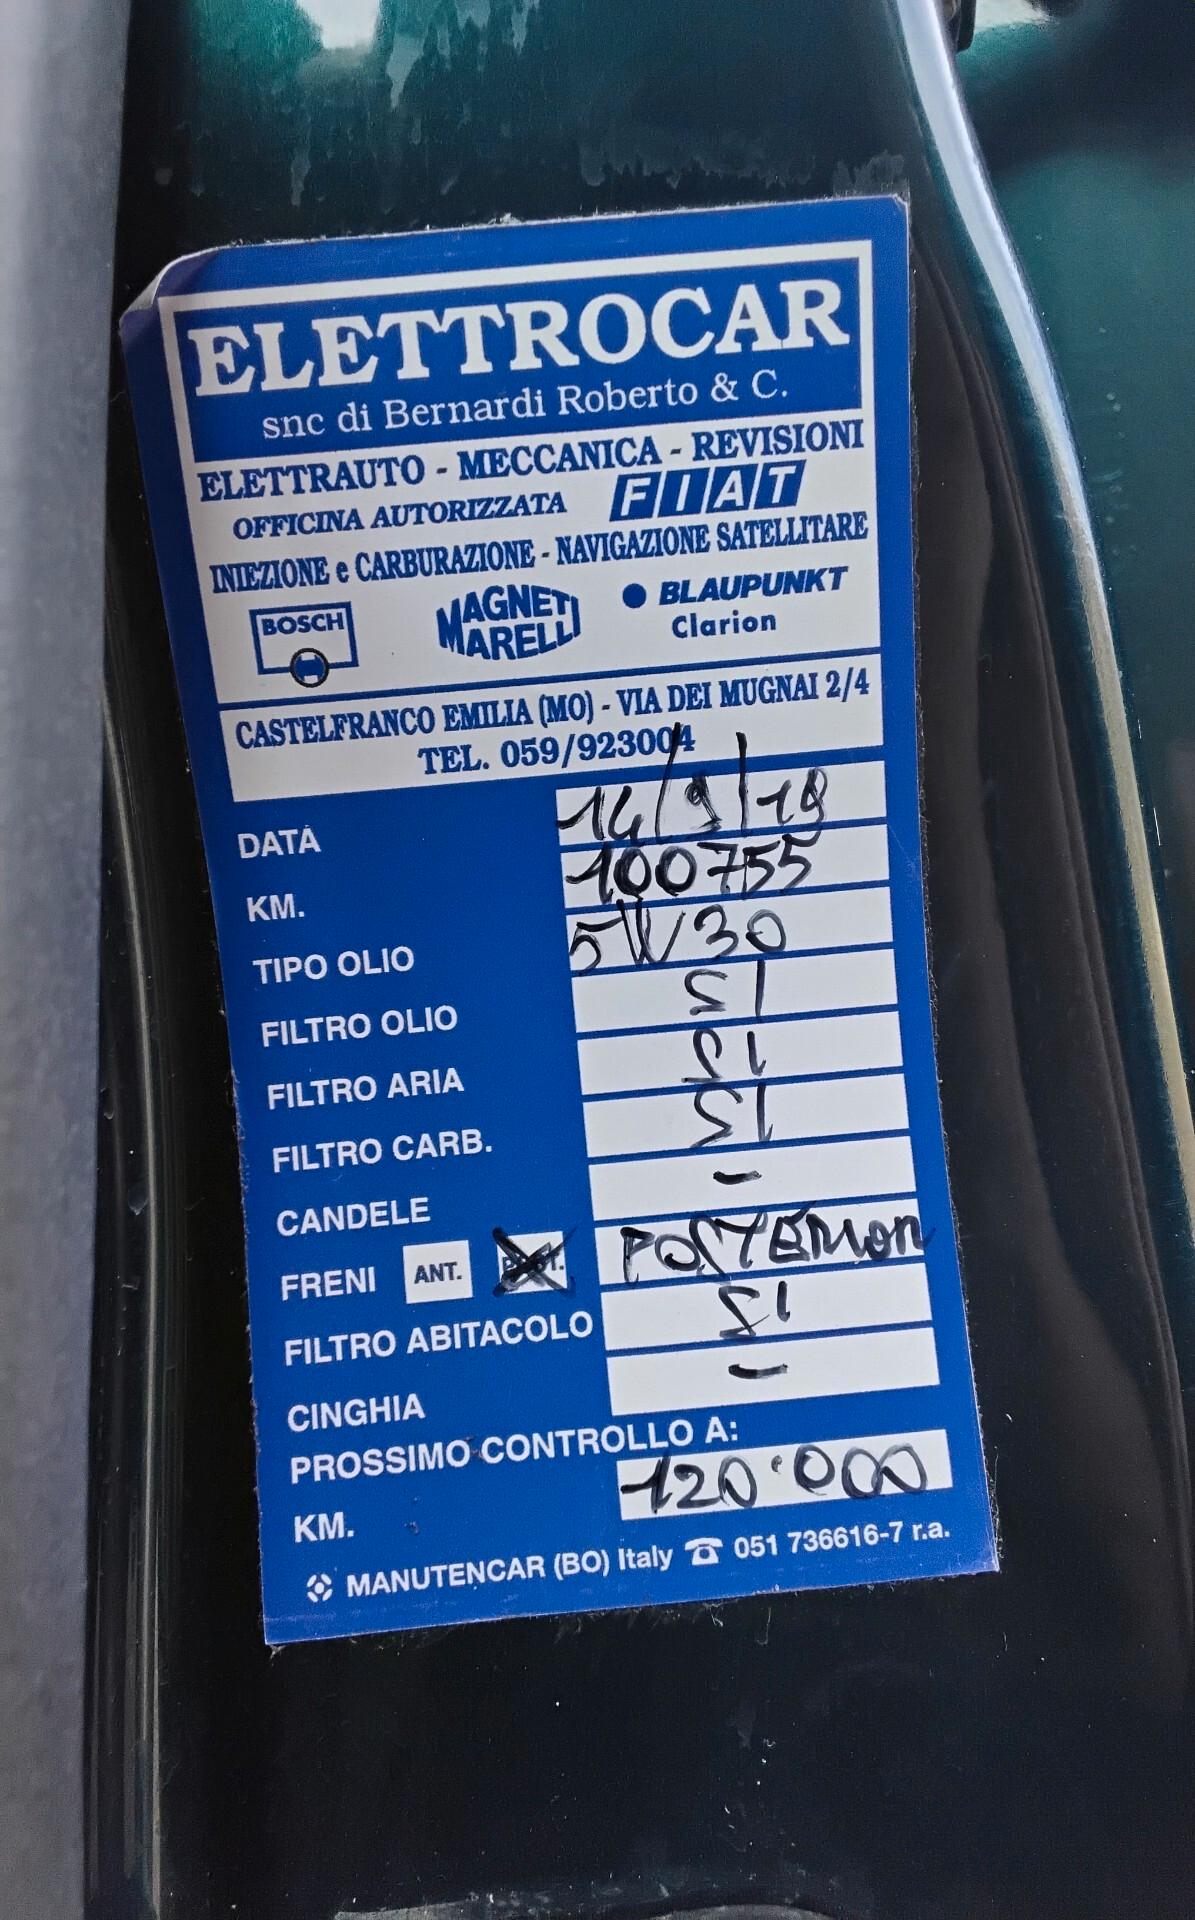 ELETTROCAR
snc di Bernardi Roberto & C.
ELETTRAUTO - MECCANICA - REVISIONI
OFFICINA AUTORIZZATA FIAT
INIEZIONE e CARBURAZIONE - NAVIGAZIONE SATELLITARE
BOSCH MAGNETI MARELLI BLAUPUNKT Clarion
CASTELFRANCO EMILIA (MO) - VIA DEI MUGNAI 2/4
TEL. 059/923004
DATA 14/9/19
KM. 100755
TIPO OLIO 5W30
FILTRO OLIO SI
FILTRO ARIA SI
FILTRO CARB. SI
CANDELE -
FRENI ANT. POST. POSTERIORI
FILTRO ABITACOLO SI
CINGHIA -
PROSSIMO CONTROLLO A:
KM. 120.000
MANUTENCAR (BO) Italy ☎ 051 736616-7 r.a.